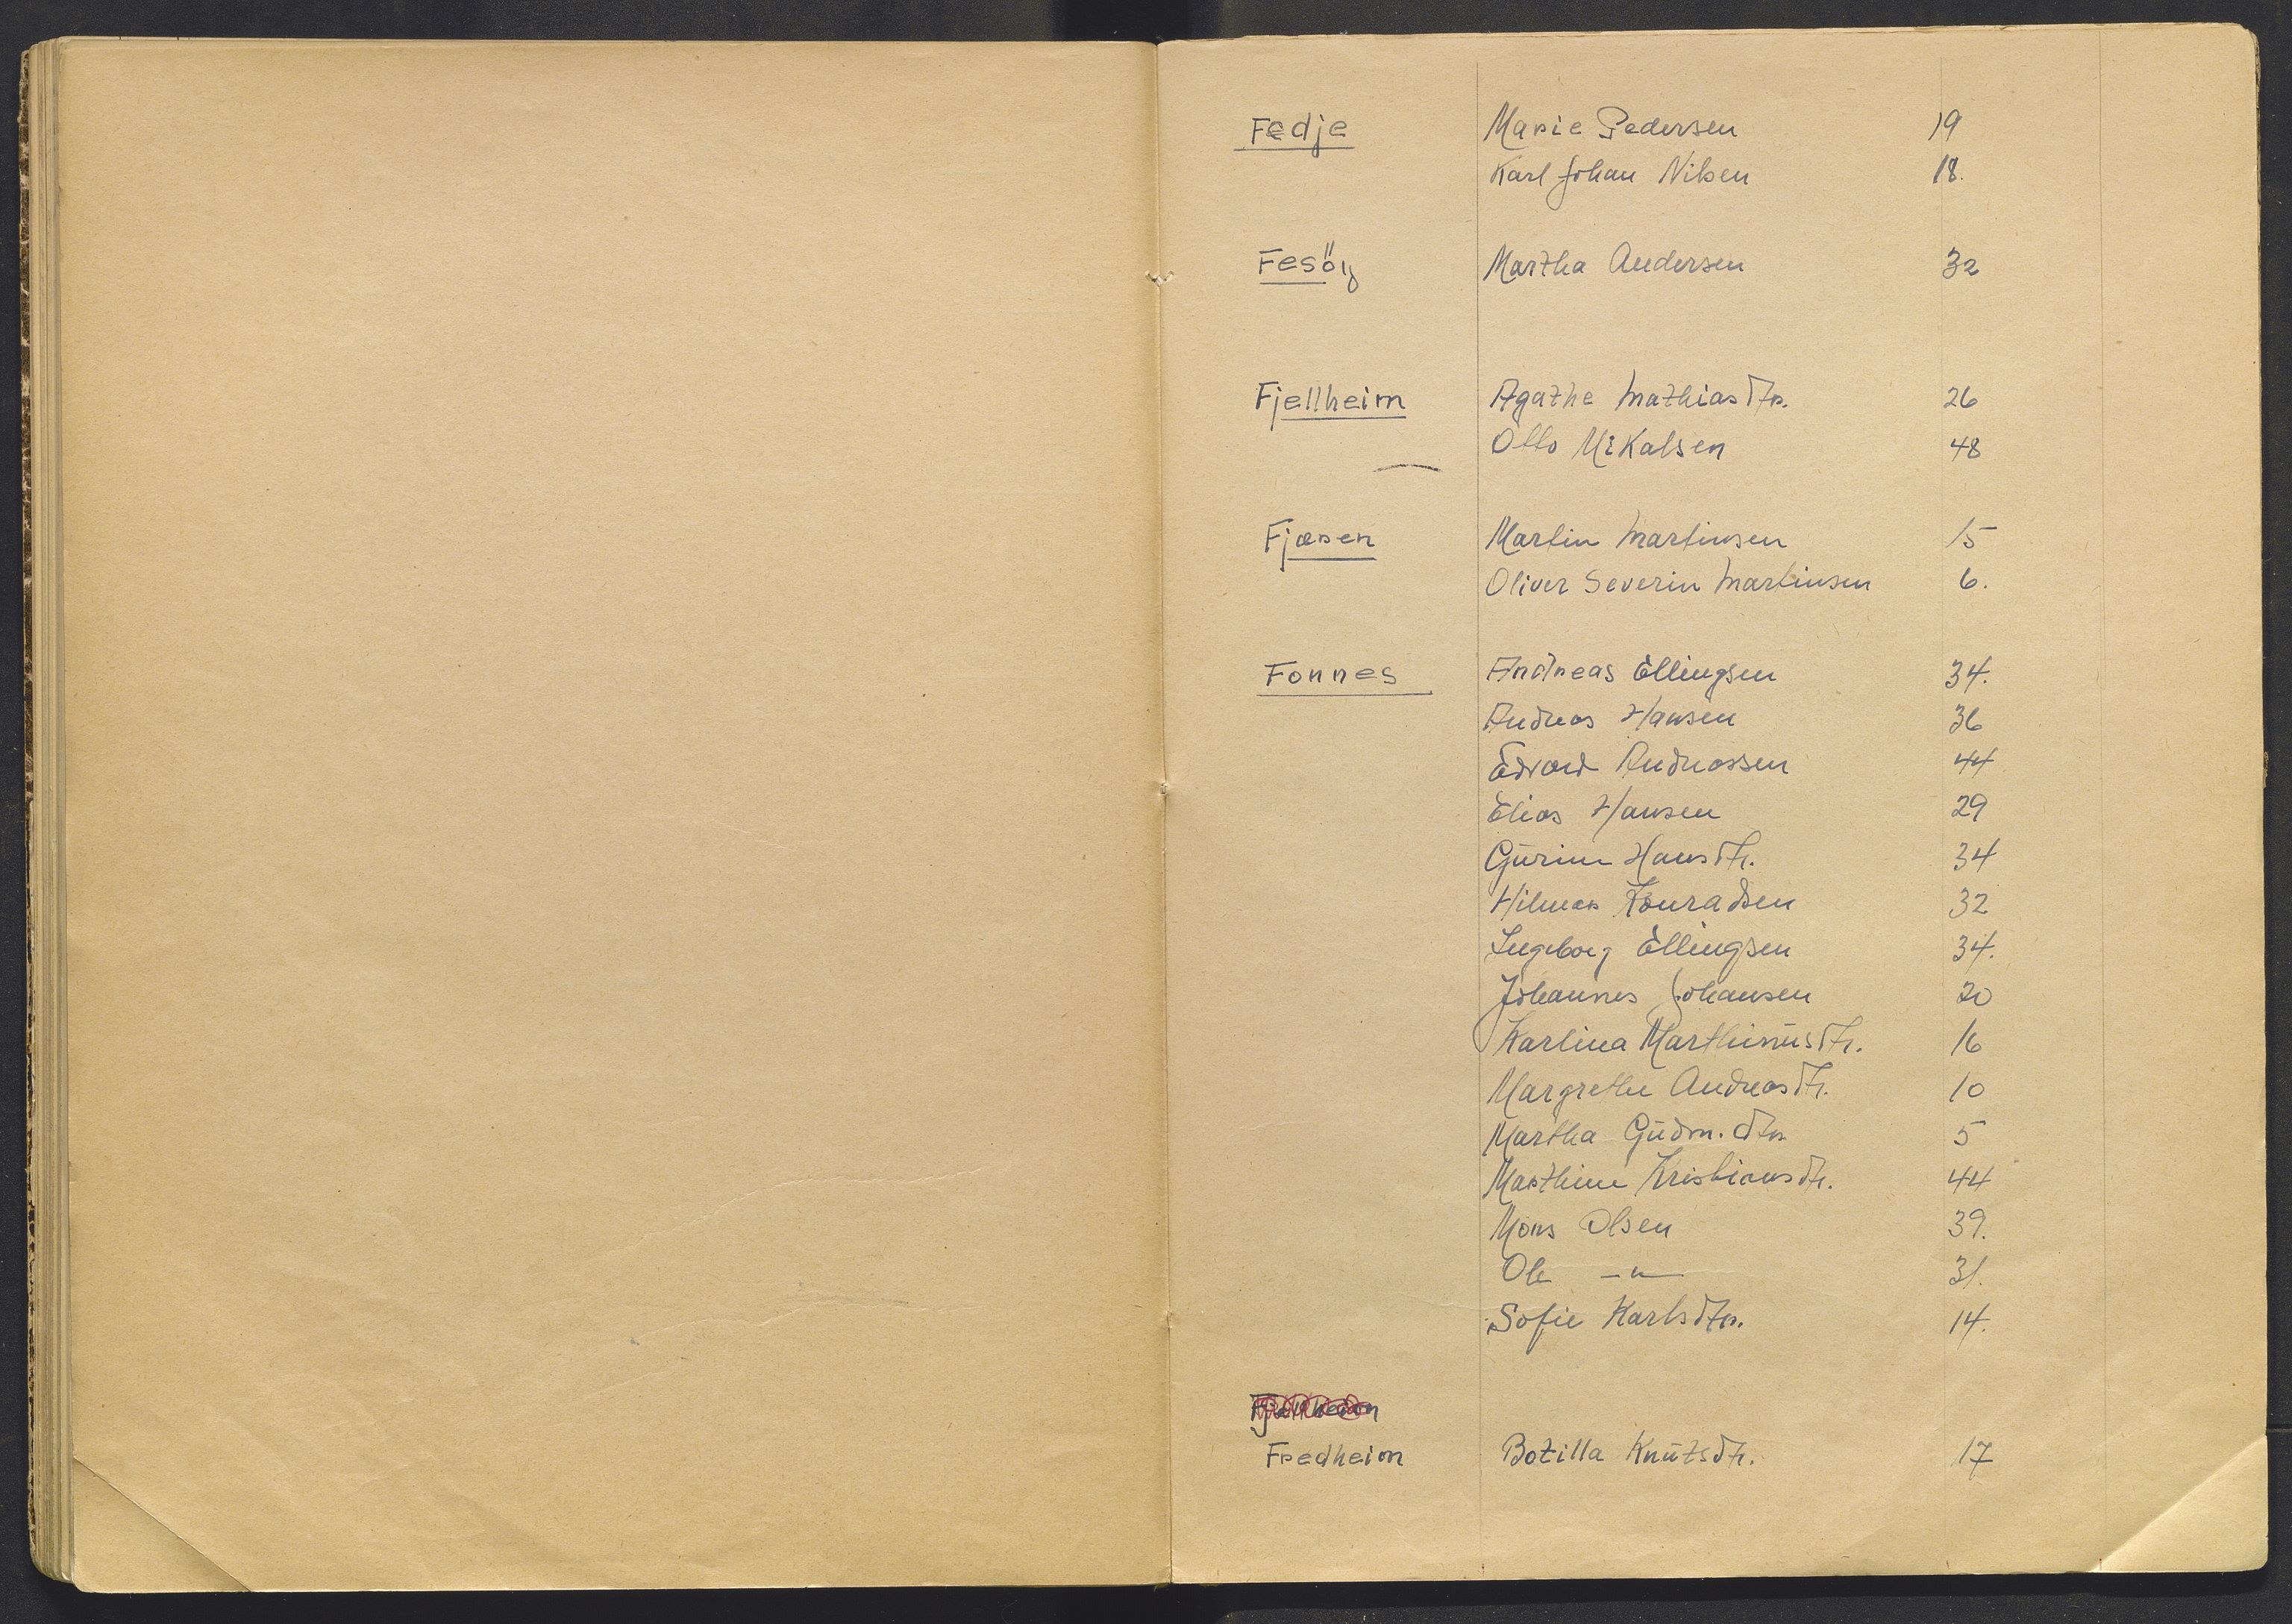 Fedje Marie Pedersen 19
Karl Johan Nilsen 18.
Fesöy Martha Andersen 32
Fjellheim Agathe Mathiasdtr. 26
Otto Mikalsen 48
Fjæren Martin Martinsen 15
Oliver Severin Martinsen 6.
Fonnes Andreas Ellingsen 34.
Andreas Hansen 36
Edvard Andreassen 44
Elias Hansen 29
Gurine Hansdtr. 34
Hilmar Konradsen 32
Ingeborg Ellingsen 34.
Johannes Johansen 20
Karlina Marthinusdtr. 16
Margrethe Andreasdtr. 10
Martha Gudm.dtr 5
Marthine Kristiansdtr. 44
Mons Olsen 39.
Ole —"— 31.
Sofie Karlsdtr. 14.
Fjellheim
Fredheim Botilla Knutsdtr. 17